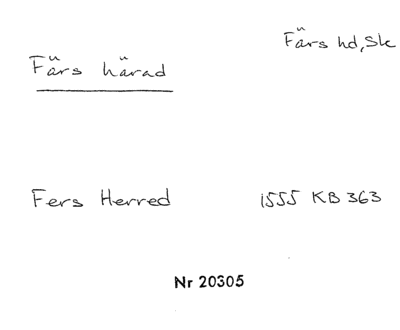 Färs härad
Färs hd, Sk
Fers Herred
1555 KB 363
Nr 20305